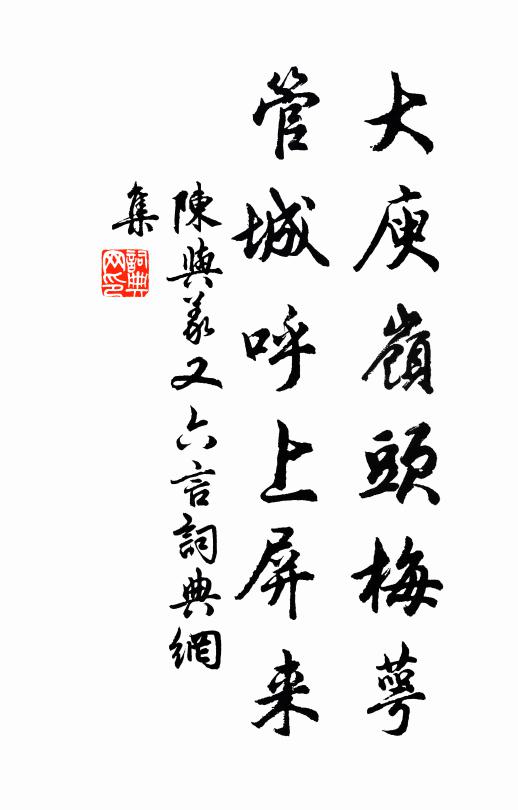 大庾嶺頭梅萼
管城呼上屏来
陳與義又六言詞典網
集
詞典
网印